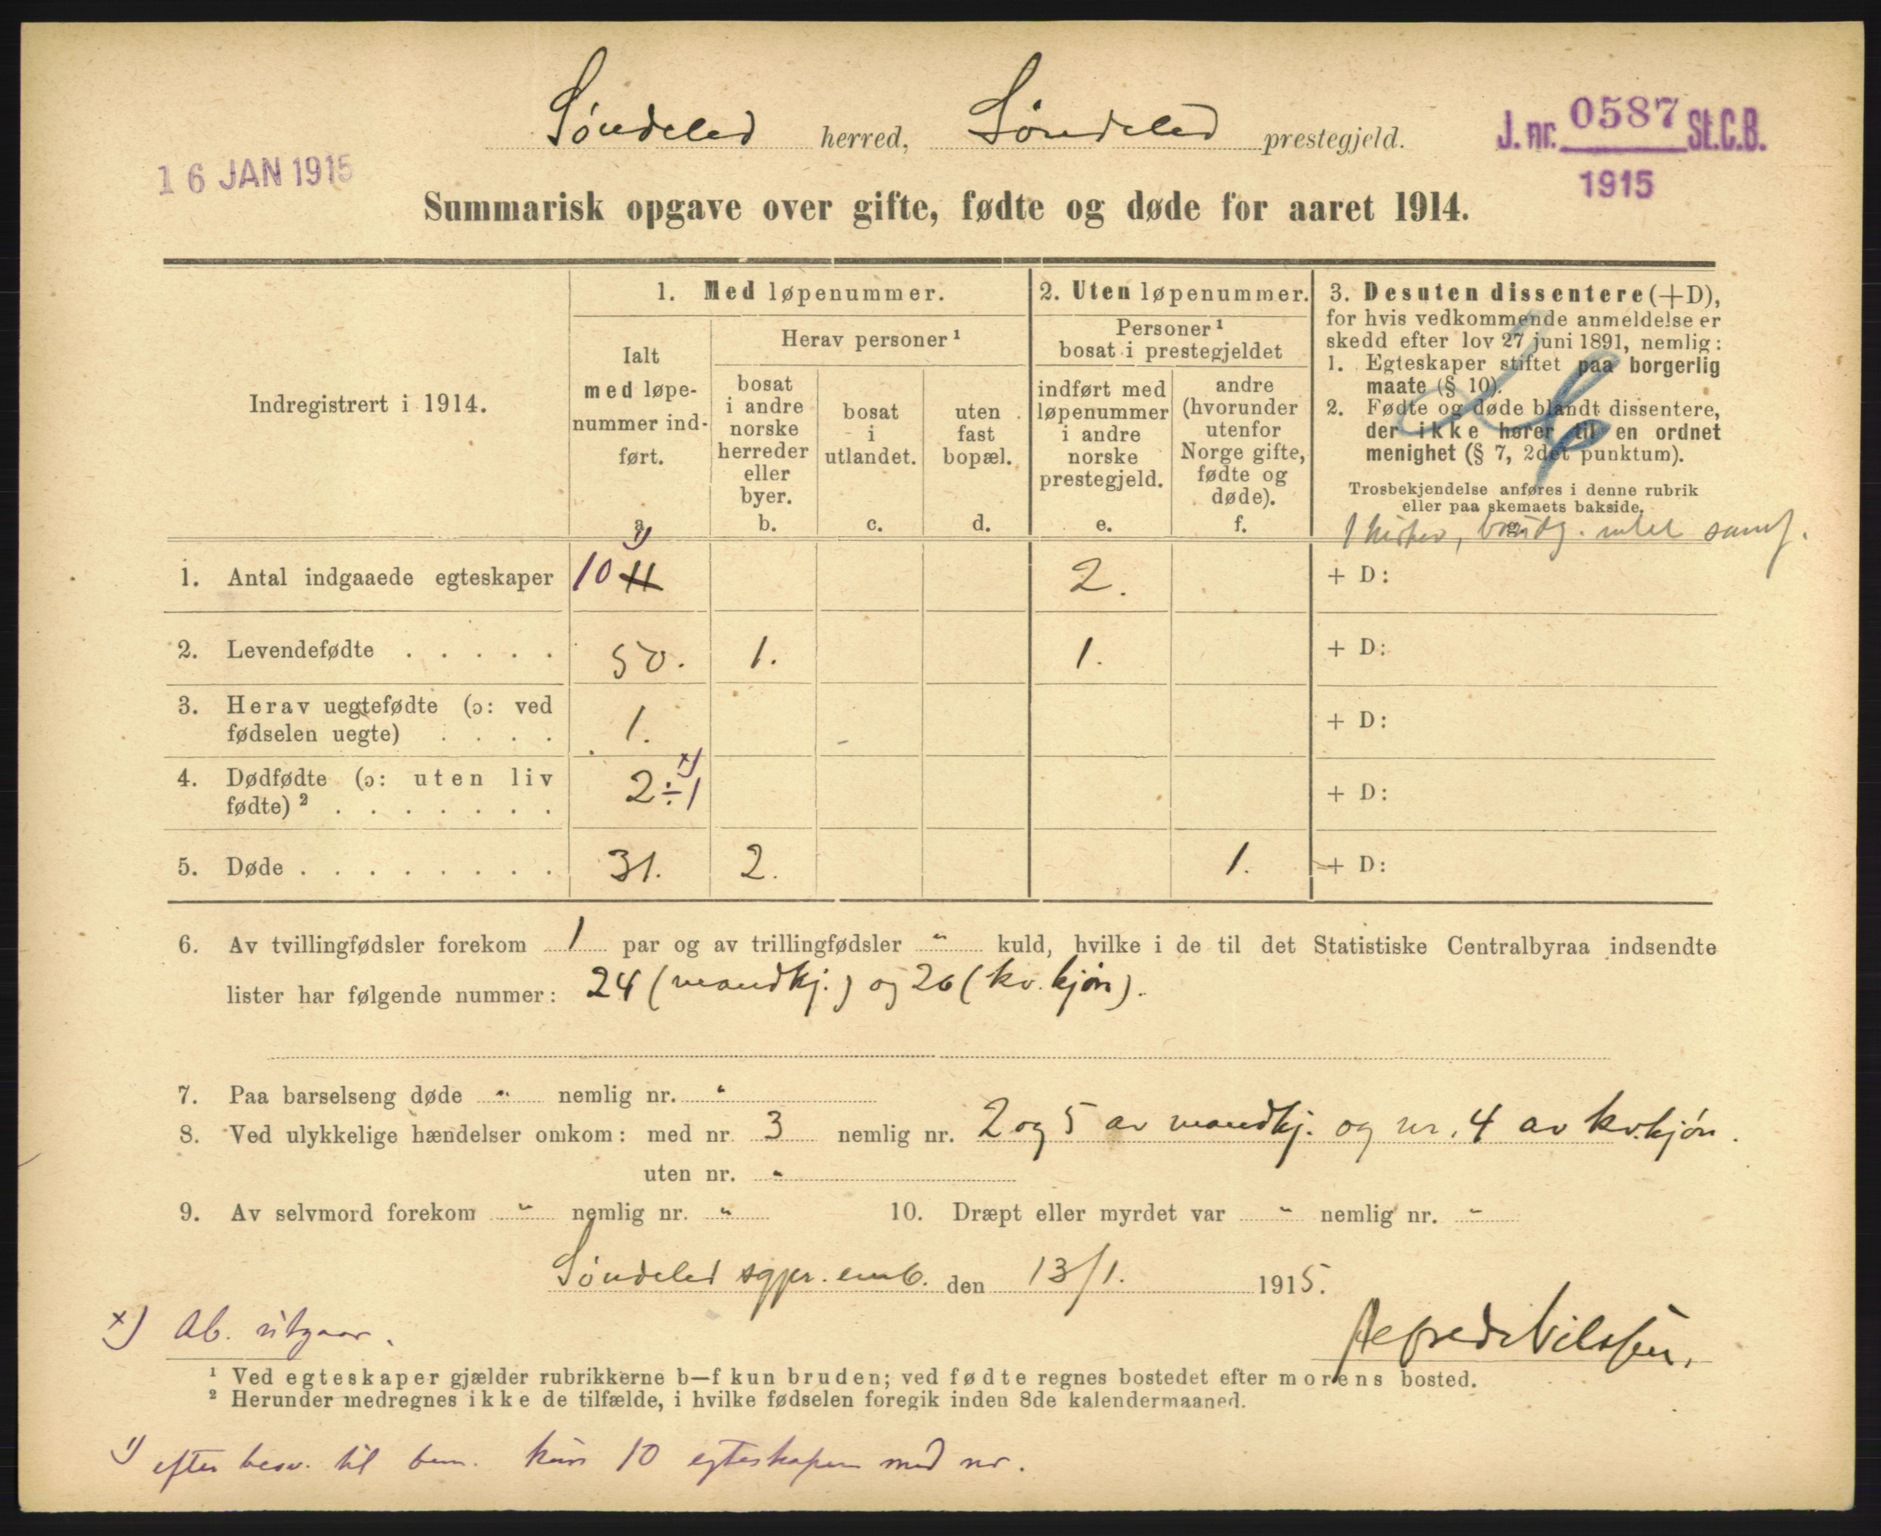 Søndeled herred, Søndeled prestegjeld.
J. nr. 0587 St.C.B.
1915
16 JAN 1915
Summarisk opgave over gifte, fødte og døde for aaret 1914.
Indregistrert i 1914.
1. Med løpenummer.
Ialt
med løpe-
nummer ind-
ført.
a.
Herav personer ¹
bosat
i andre
norske
herreder
eller
byer.
b.
bosat
i
utlandet.
c.
uten
fast
bopæl.
d.
2. Uten løpenummer.
Personer ¹
bosat i prestegjeldet
indført med
løpenummer
i andre
norske
prestegjeld.
e.
andre
(hvorunder
utenfor
Norge gifte,
fødte og
døde).
f.
3. Desuten dissentere (+D),
for hvis vedkommende anmeldelse er
skedd efter lov 27 juni 1891, nemlig:
1. Egteskaper stiftet paa borgerlig
maate (§ 10).
2. Fødte og døde blandt dissentere,
der ikke hører til en ordnet
menighet (§ 7, 2det punktum).
Trosbekjendelse anføres i denne rubrik
eller paa skemaets bakside.
g.
1. Antal indgaaede egteskaper 10 11 1) 2. + D:
2. Levendefødte . . . . . 50. 1. 1. + D:
3. Herav uegtefødte (ɔ: ved
fødselen uegte) . . . . 1. + D:
4. Dødfødte (ɔ: uten liv
fødte) ² . . . . . . . 2 ÷ 1 x) + D:
5. Døde . . . . . . . . 31. 2. 1. + D:
6. Av tvillingfødsler forekom 1 par og av trillingfødsler " kuld, hvilke i de til det Statistiske Centralbyraa indsendte
lister har følgende nummer: 24 (mandkj.) og 26 (kv. kjøn).
7. Paa barselseng døde " nemlig nr. "
8. Ved ulykkelige hændelser omkom: med nr. 3 nemlig nr. 2 og 5 av mandkj. og nr. 4 av kv.kjøn.
uten nr. "
9. Av selvmord forekom " nemlig nr. " 10. Dræpt eller myrdet var " nemlig nr. "
Søndeled sgpr. emb. den 13/1. 1915.
Alfred Nilssen.
x) Ab. utgaar.
¹ Ved egteskaper gjælder rubrikkerne b—f kun bruden; ved fødte regnes bostedet efter morens bosted.
² Herunder medregnes ikke de tilfælde, i hvilke fødselen foregik inden 8de kalendermaaned.
1) efter besv. til bem. kun 10 egteskaper med nr.